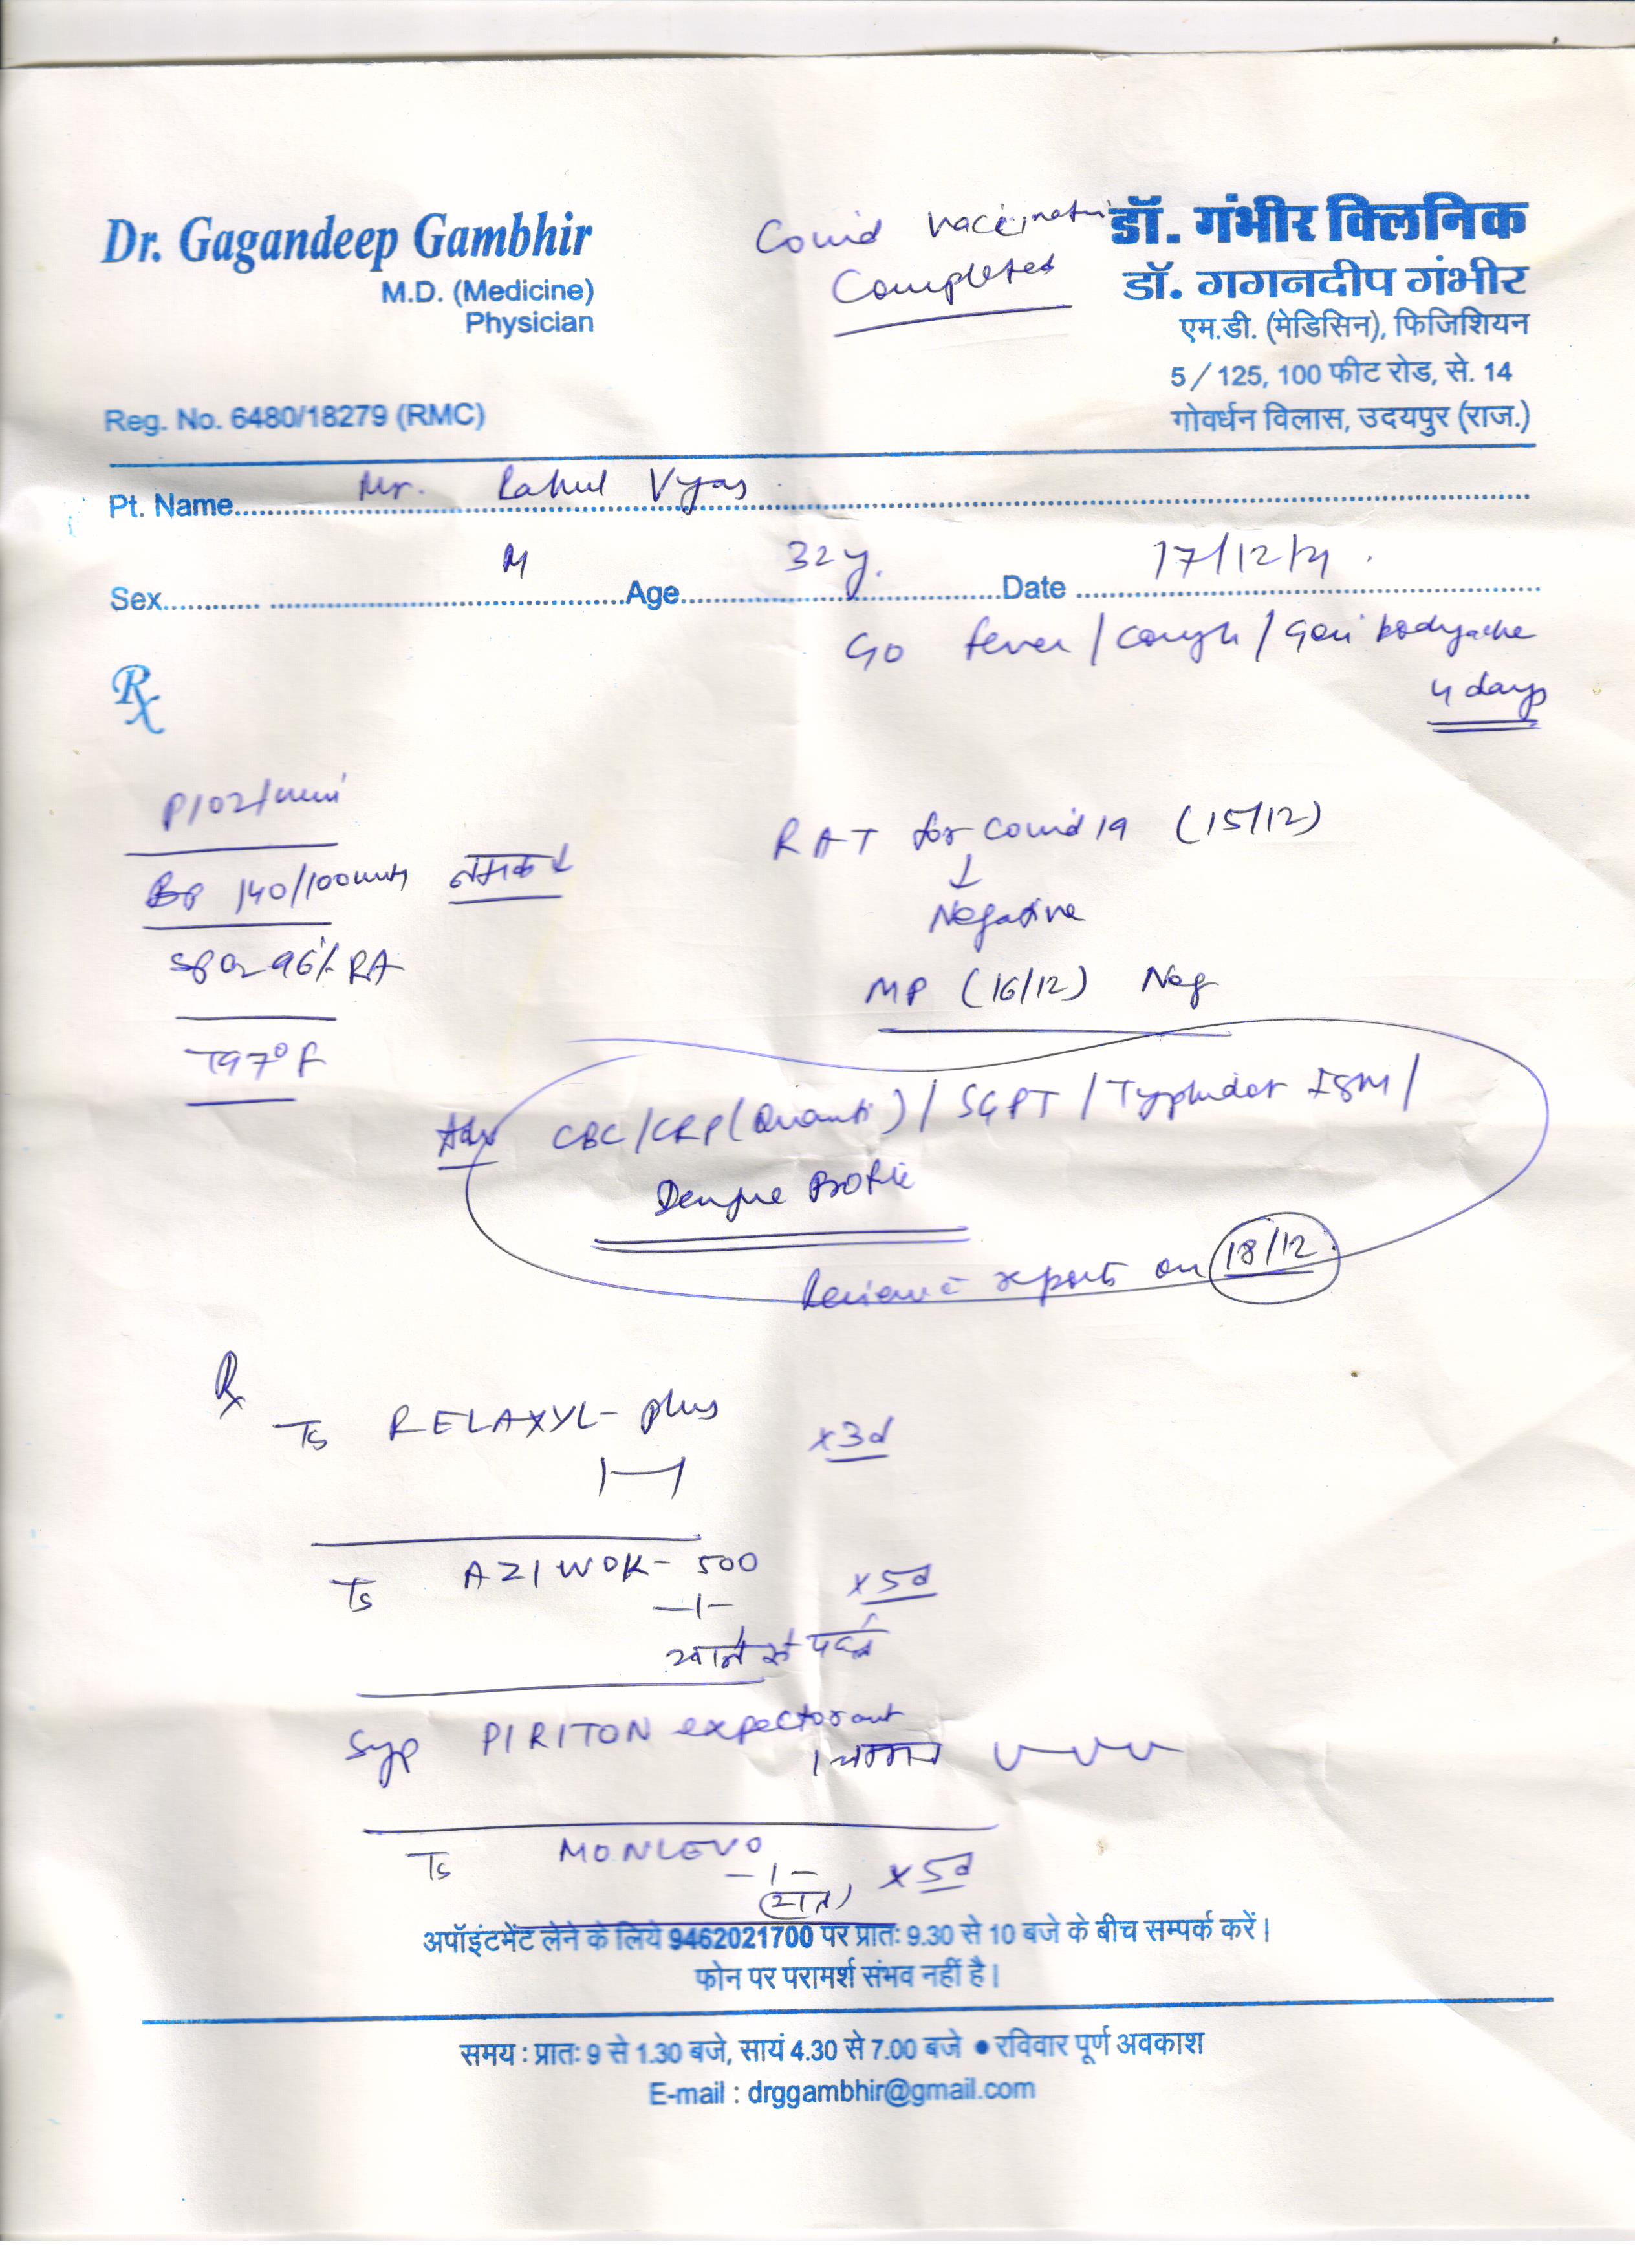 Dr. Gagandeep Gambhir
M.D. (Medicine)
Physician
Reg. No. 6480/18279 (RMC)
Covid vaccination
Completed
डॉ. गंभीर क्लिनिक
डॉ. गगनदीप गंभीर
एम.डी. (मेडिसिन), फिजिशियन
5/125, 100 फीट रोड, से. 14
गोवर्धन विलास, उदयपुर (राज.)
Pt. Name Mr. Rahul Vyas
Sex M Age 32y. Date 17/12/21.
Rx
C/O fever / cough / Gen bodyache
4 days
P102/min
BP 140/100mmHg नमक ↓
SpO2 96% RA
T97°F
RAT for Covid 19 (15/12)
↓
Negative
MP (16/12) Neg
Adv CBC/CRP (Quanti) / SGPT / Typhidot IgM /
Dengue Profile
Review c reports on 18/12.
Rx
Ts RELAXYL- plus x3d
1—1
Ts AZIWOK- 500 x5d
—1—
खाने से पहले
Syp PIRITON expectorant
1 चम्मच
Ts MONLEVO
—1— x5d
(रात)
अपॉइंटमेंट लेने के लिये 9462021700 पर प्रातः 9.30 से 10 बजे के बीच सम्पर्क करें।
फोन पर परामर्श संभव नहीं है।
समय : प्रातः 9 से 1.30 बजे, सायं 4.30 से 7.00 बजे ● रविवार पूर्ण अवकाश
E-mail : drggambhir@gmail.com